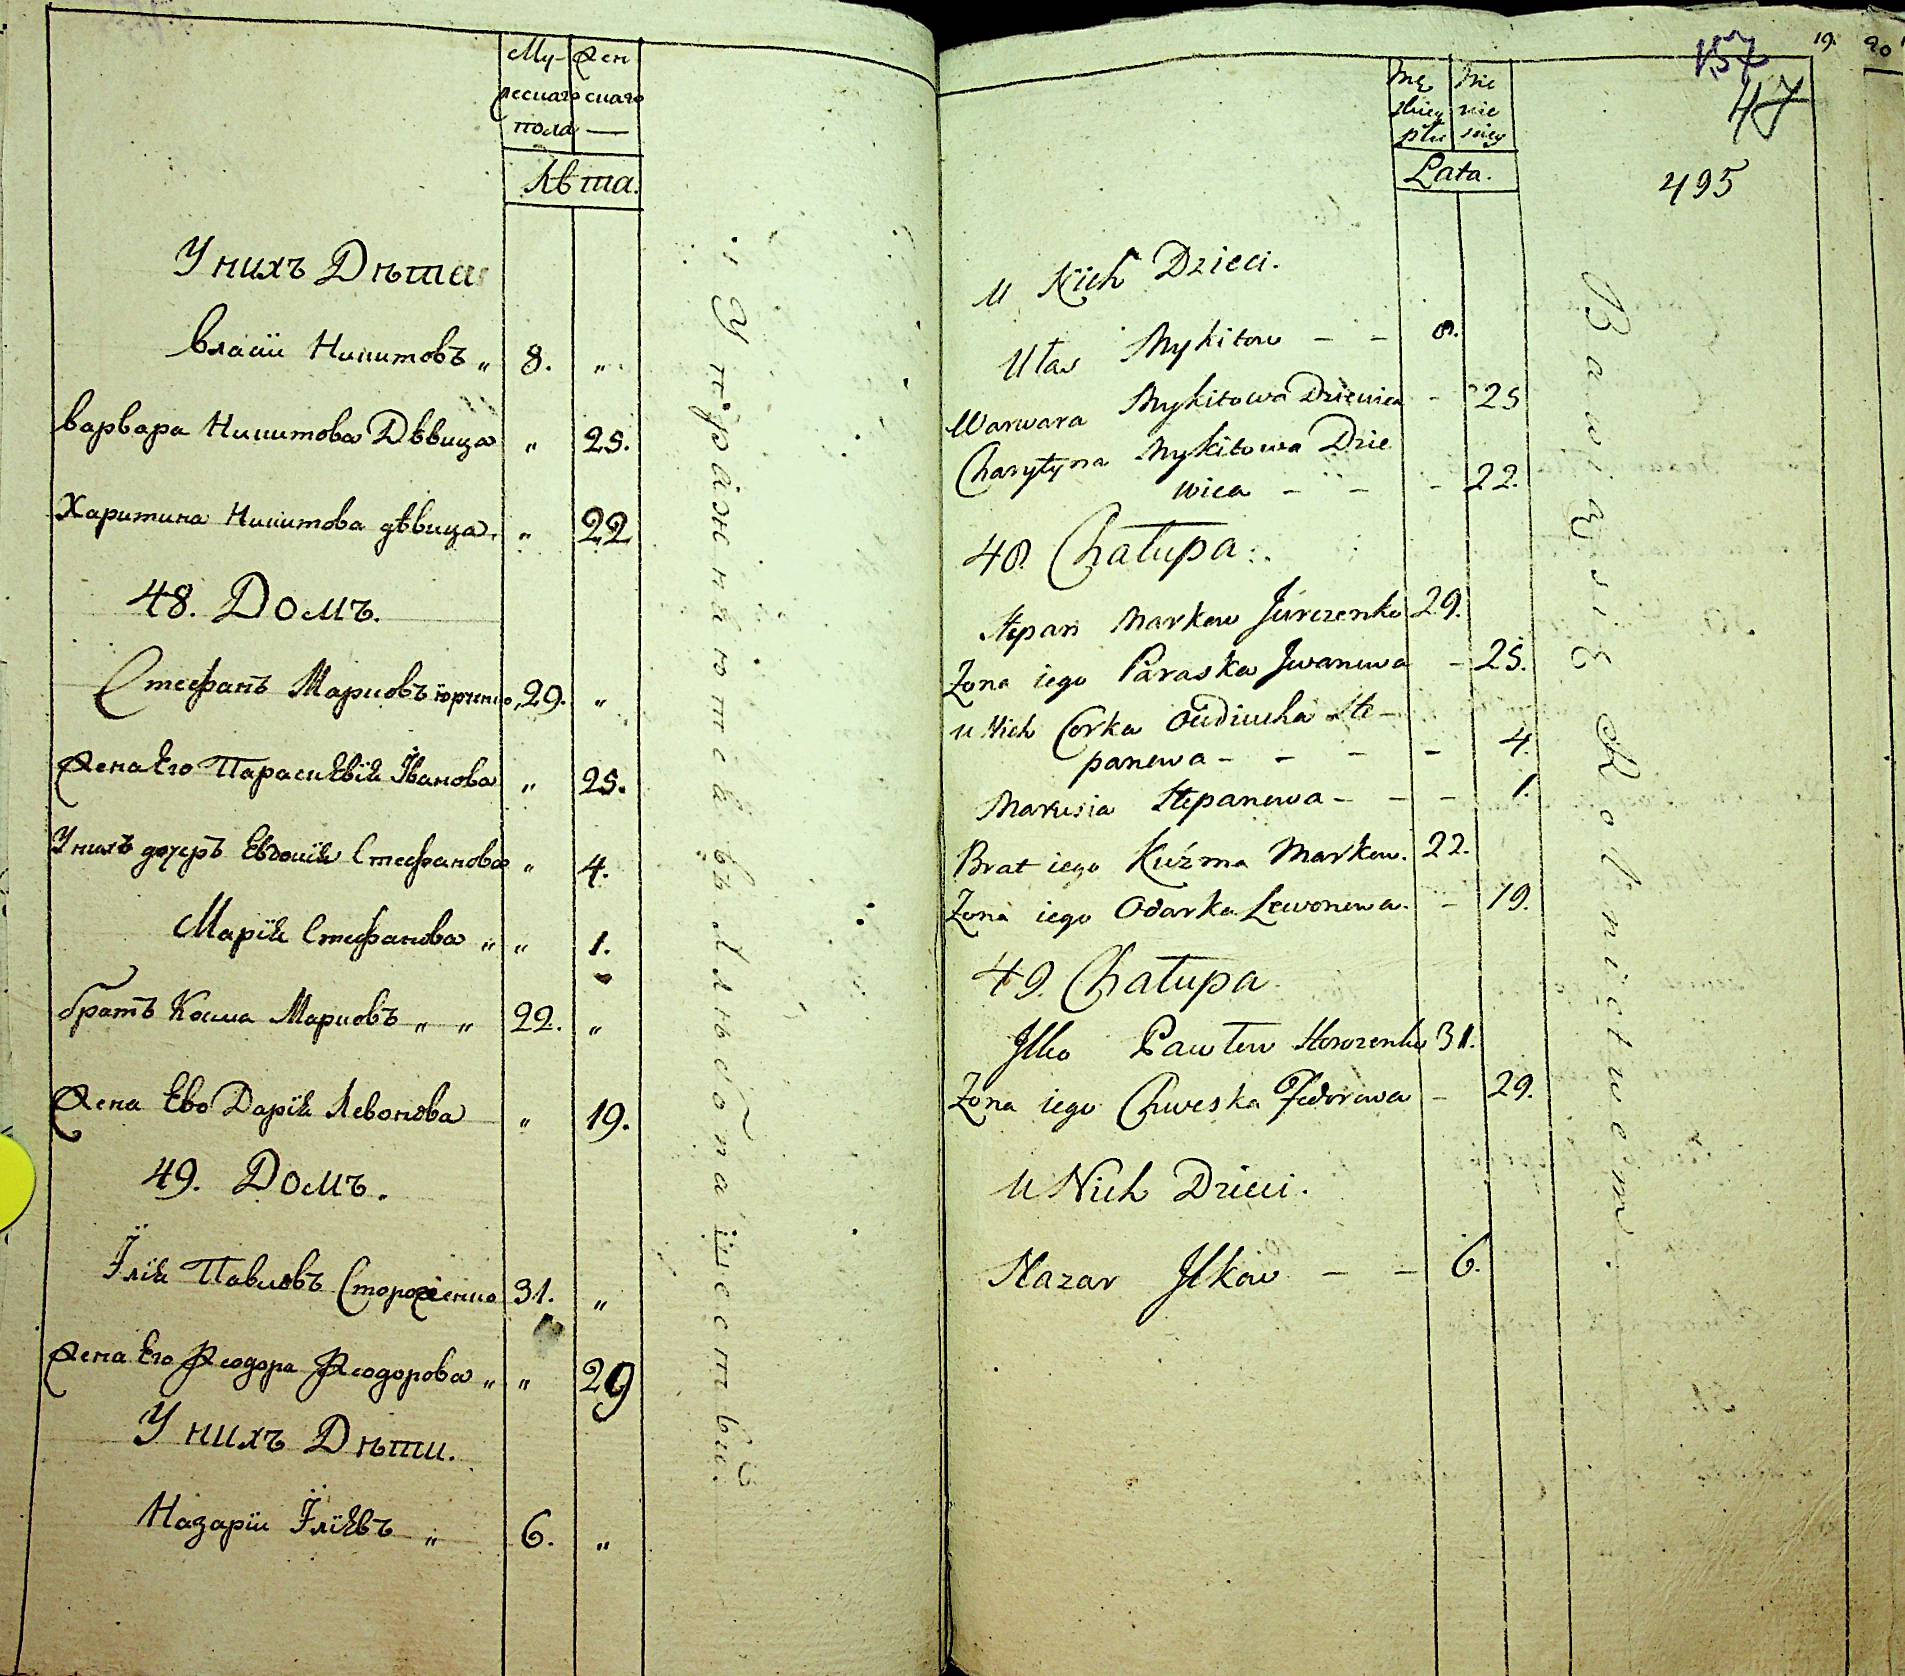 Му-
жескаго
пола
Жен
скаго
Лѣта.
У нихъ Дѣти
Власїи Никитовъ „ 8. „
Варвара Никитова Дѣвица „ 25.
Харитина Никитова дѣвица. „ 22
48. Домъ.
Стефанъ Марковъ Юрченко, 29. „
Жена Его Параскевїя Їванова „ 25.
У нихъ дочерь Евдокїя Стефанова „ 4.
Марїя Стефанова „ „ 1.
братъ Косма Марковъ „ „ 22. „
Жена Ево Дарїя Левонова „ 19.
49. Домъ.
Їлїя Павловъ Стороженко 31. „
Жена Его Феодора Феодорова „ „ 29
У нихъ Дѣти.
Назарїи Їлїевъ „ 6. „
Упражняются въ хлѣбопашествѣ.
157
19.
20
47
495
Mę
skiey
płci
Żie
nie
skiey
Lata.
U Nich Dzieci.
Ułas Mykitow – – 8.
Warwara Mykitowa Dziewica – 25
Charytyna Mykitowa Dzie
wica – – – 22.
48. Chałupa.
Stepan Markow Jurczenko 29.
Żona iego Paraska Jwanowa – 25.
U Nich Corka Oudiucha Ste–
panowa – – – – 4.
Marusia Stepanowa – – – 1.
Brat iego Kuźma Markow. 22.
Żona iego Odarka Lewonowa. – 19.
49. Chałupa
Jlko Pawłow Storozenko 31.
Żona iego Chweska Fedorowa – 29.
U Nich Dzieci.
Nazar Jlkow – – 6.
Bawią się Rolnictwem.